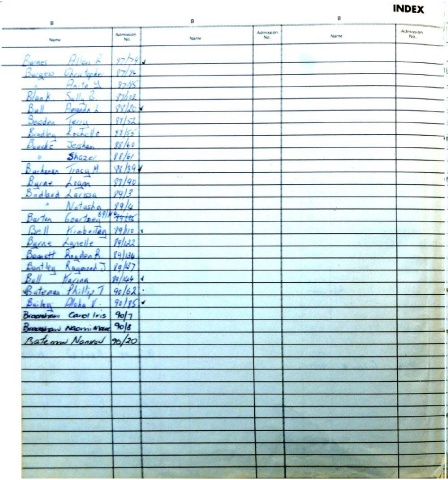 INDEX
B B B
Name Admission No. Name Admission No. Name Admission No.
Barnes Allen R 87/79
Burgess Christopher 87/84
" Anita Y 87/85
Blank Sally B. 87/102
Ball Amanda L 88/20
Bowden Terry 88/52
Bradley Rochelle 88/55
Jershan 88/60
" Shazer 88/61
Buchanan Tracy M 88/84
Byrne Logan 88/90
Birdland Larissa 89/3
" Natasha 89/4
Barton Courtney
Bell Kimberley 89/110
Byrne Lynelle 89/122
Bennett Rhyden R 89/126
Bentley Raymond J 89/127
Bell Karina 89/144
Bateman Phillip T 90/62
Bailey Alpha V. 90/85
Carol Iris 90/7
Naomi Marie 90/8
Bateman Nannon 90/20